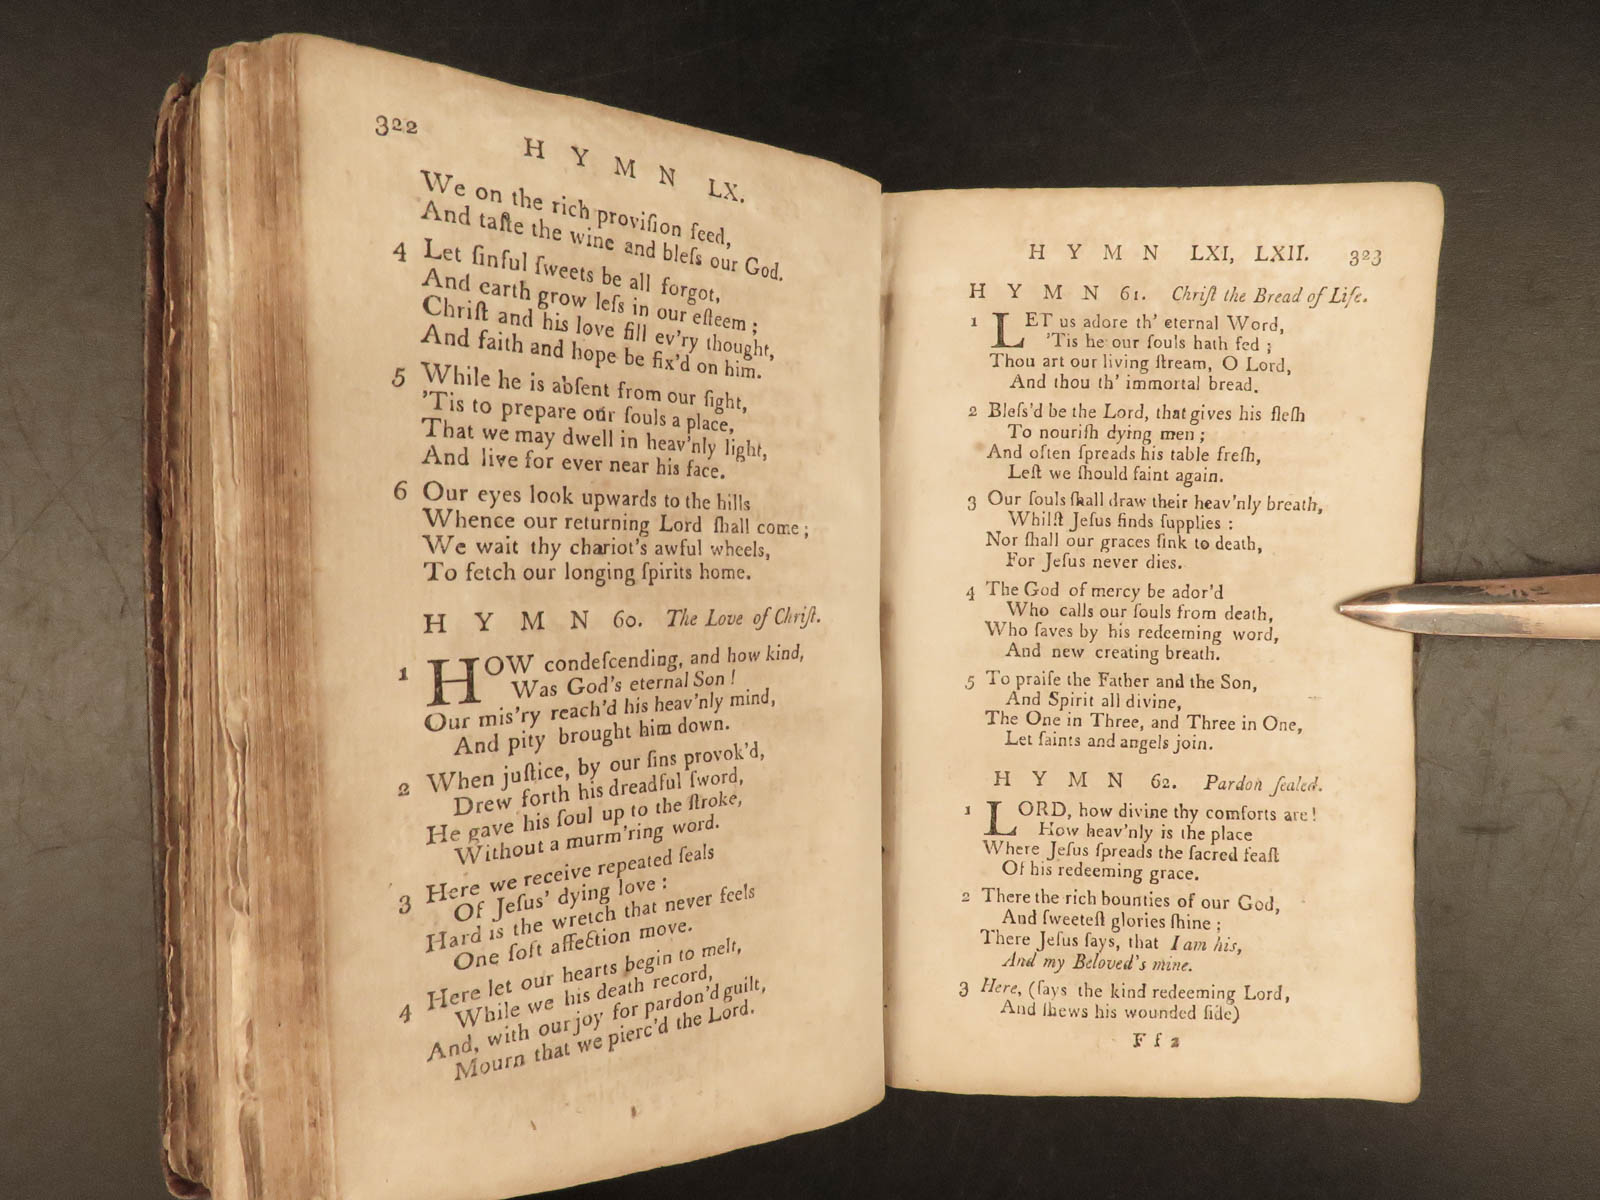 322
H Y M N LX.
We on the rich proviſion feed,
And taſte the wine and bleſs our God.
4 Let ſinful ſweets be all forgot,
And earth grow leſs in our eſteem ;
Chriſt and his love fill ev'ry thought,
And faith and hope be fix'd on him.
5 While he is abſent from our ſight,
'Tis to prepare our ſouls a place,
That we may dwell in heav'nly light,
And live for ever near his face.
6 Our eyes look upwards to the hills
Whence our returning Lord ſhall come ;
We wait thy chariot's awful wheels,
To fetch our longing ſpirits home.
H Y M N 60. The Love of Chriſt.
1 HOW condeſcending, and how kind,
Was God's eternal Son !
Our mis'ry reach'd his heav'nly mind,
And pity brought him down.
2 When juſtice, by our ſins provok'd,
Drew forth his dreadful ſword,
He gave his ſoul up to the ſtroke,
Without a murm'ring word.
3 Here we receive repeated ſeals
Of Jeſus' dying love :
Hard is the wretch that never feels
One ſoft affection move.
4 Here let our hearts begin to melt,
While we his death record,
And, with our joy for pardon'd guilt,
Mourn that we pierc'd the Lord.
H Y M N LXI, LXII. 323
H Y M N 61. Chriſt the Bread of Life.
1 LET us adore th' eternal Word,
'Tis he our ſouls hath fed ;
Thou art our living ſtream, O Lord,
And thou th' immortal bread.
2 Bleſs'd be the Lord, that gives his fleſh
To nouriſh dying men ;
And often ſpreads his table freſh,
Leſt we ſhould faint again.
3 Our ſouls ſhall draw their heav'nly breath,
Whilſt Jeſus finds ſupplies :
Nor ſhall our graces ſink to death,
For Jeſus never dies.
4 The God of mercy be ador'd
Who calls our ſouls from death,
Who ſaves by his redeeming word,
And new creating breath.
5 To praiſe the Father and the Son,
And Spirit all divine,
The One in Three, and Three in One,
Let ſaints and angels join.
H Y M N 62. Pardon ſealed.
1 LORD, how divine thy comforts are !
How heav'nly is the place
Where Jeſus ſpreads the ſacred feaſt
Of his redeeming grace.
2 There the rich bounties of our God,
And ſweeteſt glories ſhine ;
There Jeſus ſays, that I am his,
And my Beloved's mine.
3 Here, (ſays the kind redeeming Lord,
And ſhews his wounded ſide)
F f 2